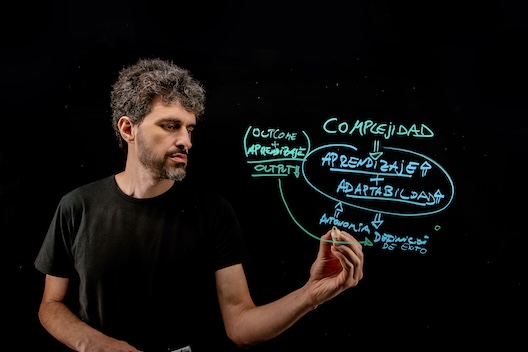 COMPLEJIDAD
(OUTCOME
+
APRENDIZAJE)
OUTPUT
APRENDIZAJE ↑
+
ADAPTABILDAD ↑
AUTONOMIA
DEFINICIÓN
DE ÉXITO